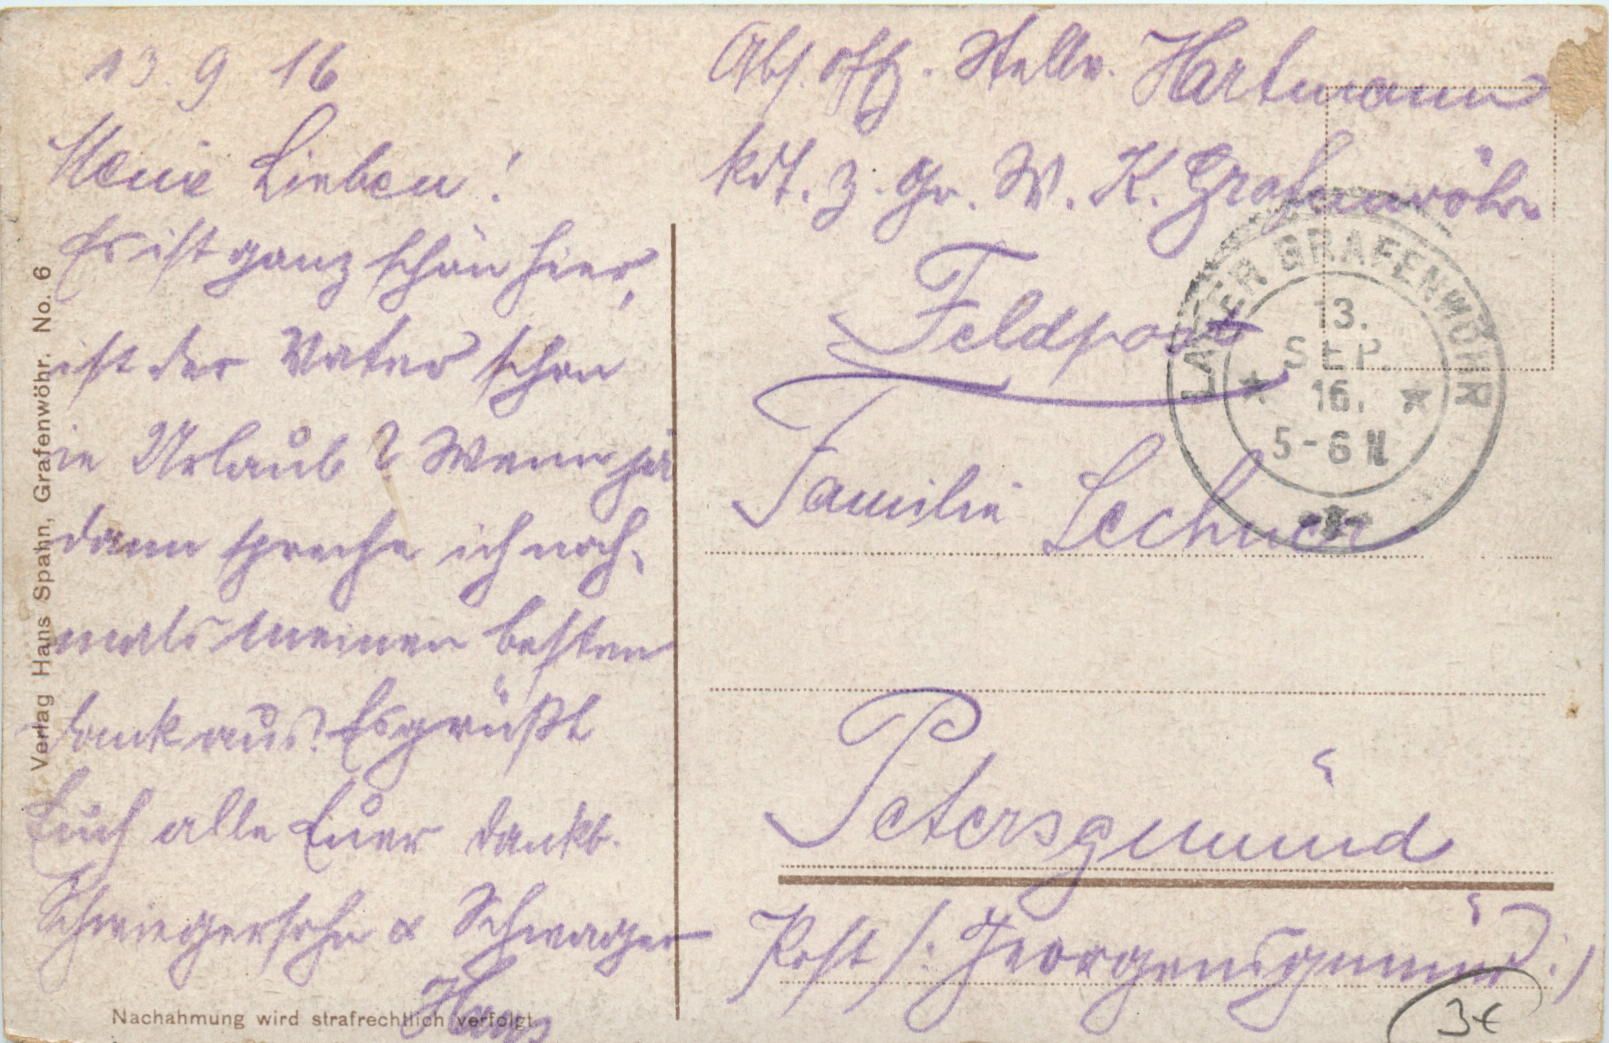 13.9.16
Meine Lieben!
Es ist ganz schön hier,
ist der Vater schon
in Urlaub? Wenn ja
dann spreche ich noch-
mals meinen besten
Dank aus. Es grüßt
Euch alle Euer dankb.
Schwiegersohn & Schwager
Hans
Verlag Hans Spahn, Grafenwöhr. No. 6
Nachahmung wird strafrechtlich verfolgt
Abs. Offz. Stellv. Hartmann
Kdt. z. Gr. W. K. Grafenwöhr
Feldpost
LAGER GRAFENWÖHR
13.
SEP.
16.
5-6 N
Familie Lechner
Petersgmünd
Post /: Georgensgmünd :/
3€